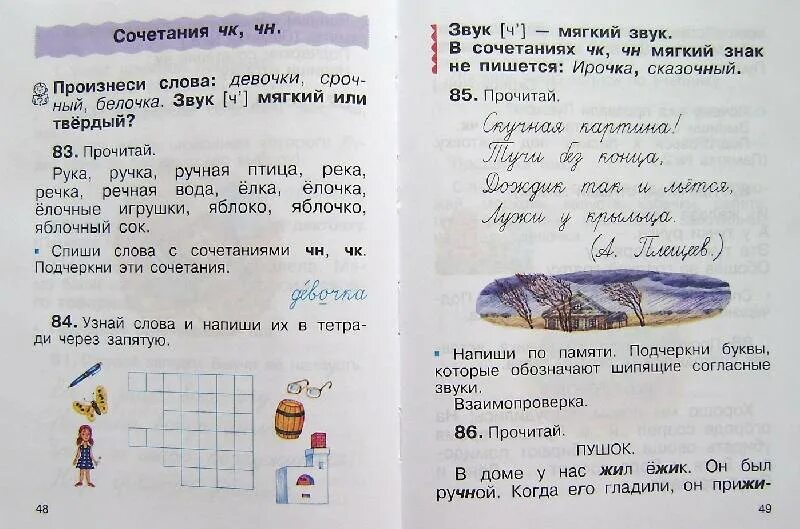 Сочетания чк, чн.
Произнеси слова: девочки, сроч-
ный, белочка. Звук [ч'] мягкий или
твёрдый?
83. Прочитай.
Рука, ручка, ручная птица, река,
речка, речная вода, ёлка, ёлочка,
ёлочные игрушки, яблоко, яблочко,
яблочный сок.
Спиши слова с сочетаниями чн, чк.
Подчеркни эти сочетания.
девочка
84. Узнай слова и напиши их в тетра-
ди через запятую.
48
Звук [ч'] — мягкий звук.
В сочетаниях чк, чн мягкий знак
не пишется: Ирочка, сказочный.
85. Прочитай.
Скучная картина!
Тучи без конца,
Дождик так и льётся,
Лужи у крыльца.
(А. Плещеев.)
Напиши по памяти. Подчеркни буквы,
которые обозначают шипящие согласные
звуки.
Взаимопроверка.
86. Прочитай.
ПУШОК.
В доме у нас жил ёжик. Он был
ручной. Когда его гладили, он прижи-
49